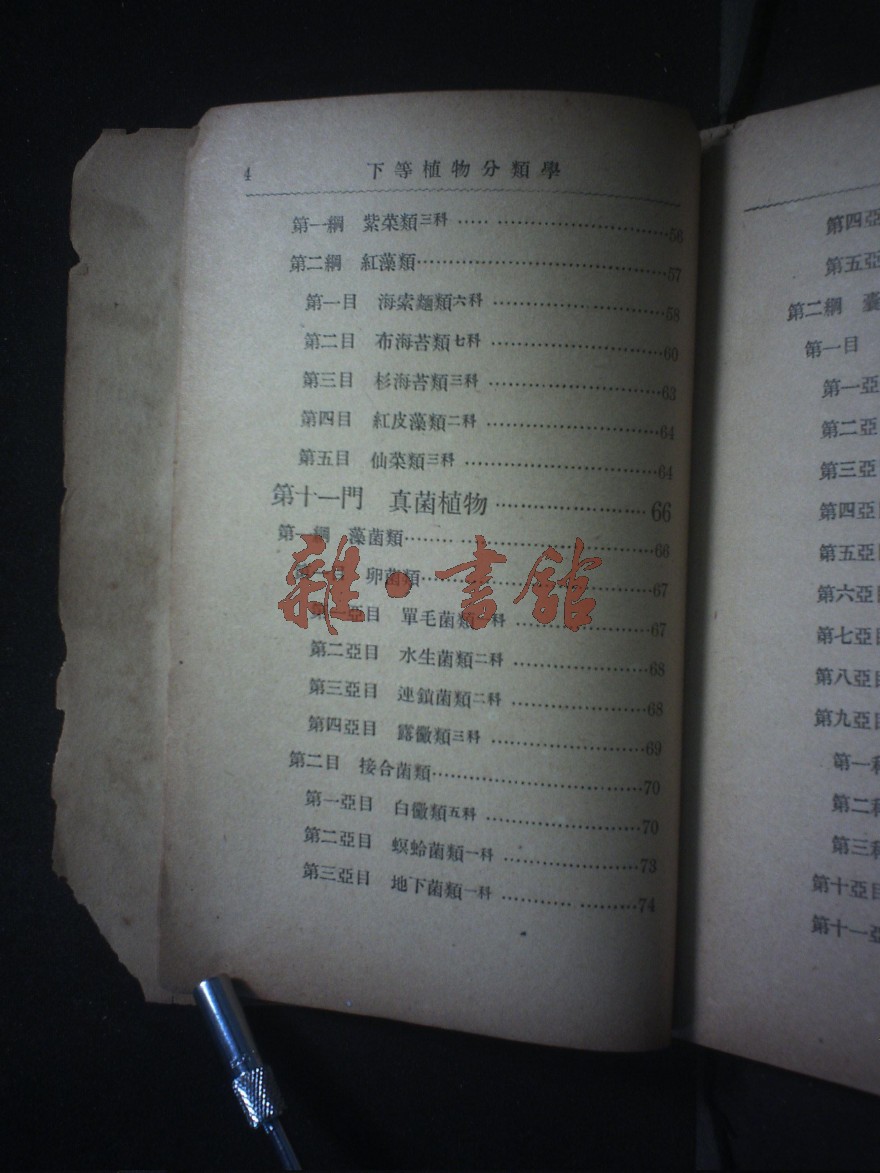 4 下等植物分類學
第一綱 紫菜類三科 …… ……………………56
第二綱 紅藻類……………………………57
第一目 海索麵類六科 ……………………58
第二目 布海苔類七科 ……………………60
第三目 杉海苔類三科 ……………………63
第四目 紅皮藻類二科 ……………………64
第五目 仙菜類三科 ………………………64
第十一門 真菌植物………………66
第一綱 藻菌類…… ………………………66
第一目 卵菌類……………………………67
第一亞目 單毛菌類一科 ………………67
第二亞目 水生菌類二科 ………………68
第三亞目 連鎖菌類二科 ………………68
第四亞目 露黴類三科 …………………69
第二目 接合菌類…………………………70
第一亞目 白黴類五科 …………………70
第二亞目 螟蛉菌類一科 ………………73
第三亞目 地下菌類一科 ……… ………74
雜·書館
第四亞
第五亞
第二綱 囊
第一目
第一亞
第二亞
第三亞
第四亞
第五亞
第六亞
第七亞
第八亞
第九亞
第一
第二
第三
第十亞
第十一亞